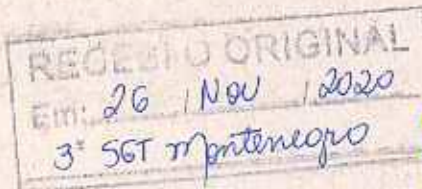 RECEBI O ORIGINAL
Em: 26 / NOV / 2020
3º SGT Montenegro